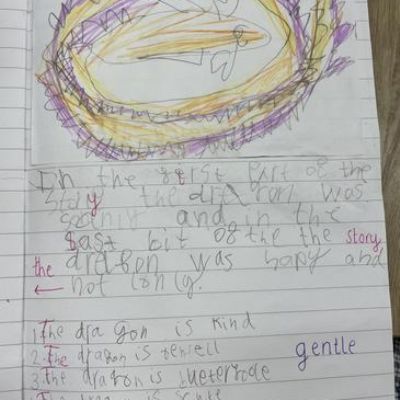 In the first part of the
story the dragon was
and in the
last bit of the the story
the dragon was hapy and
not lonly.
1. The dragon is kind
2. The dragon is gentle
3. The dragon is
The dragon is